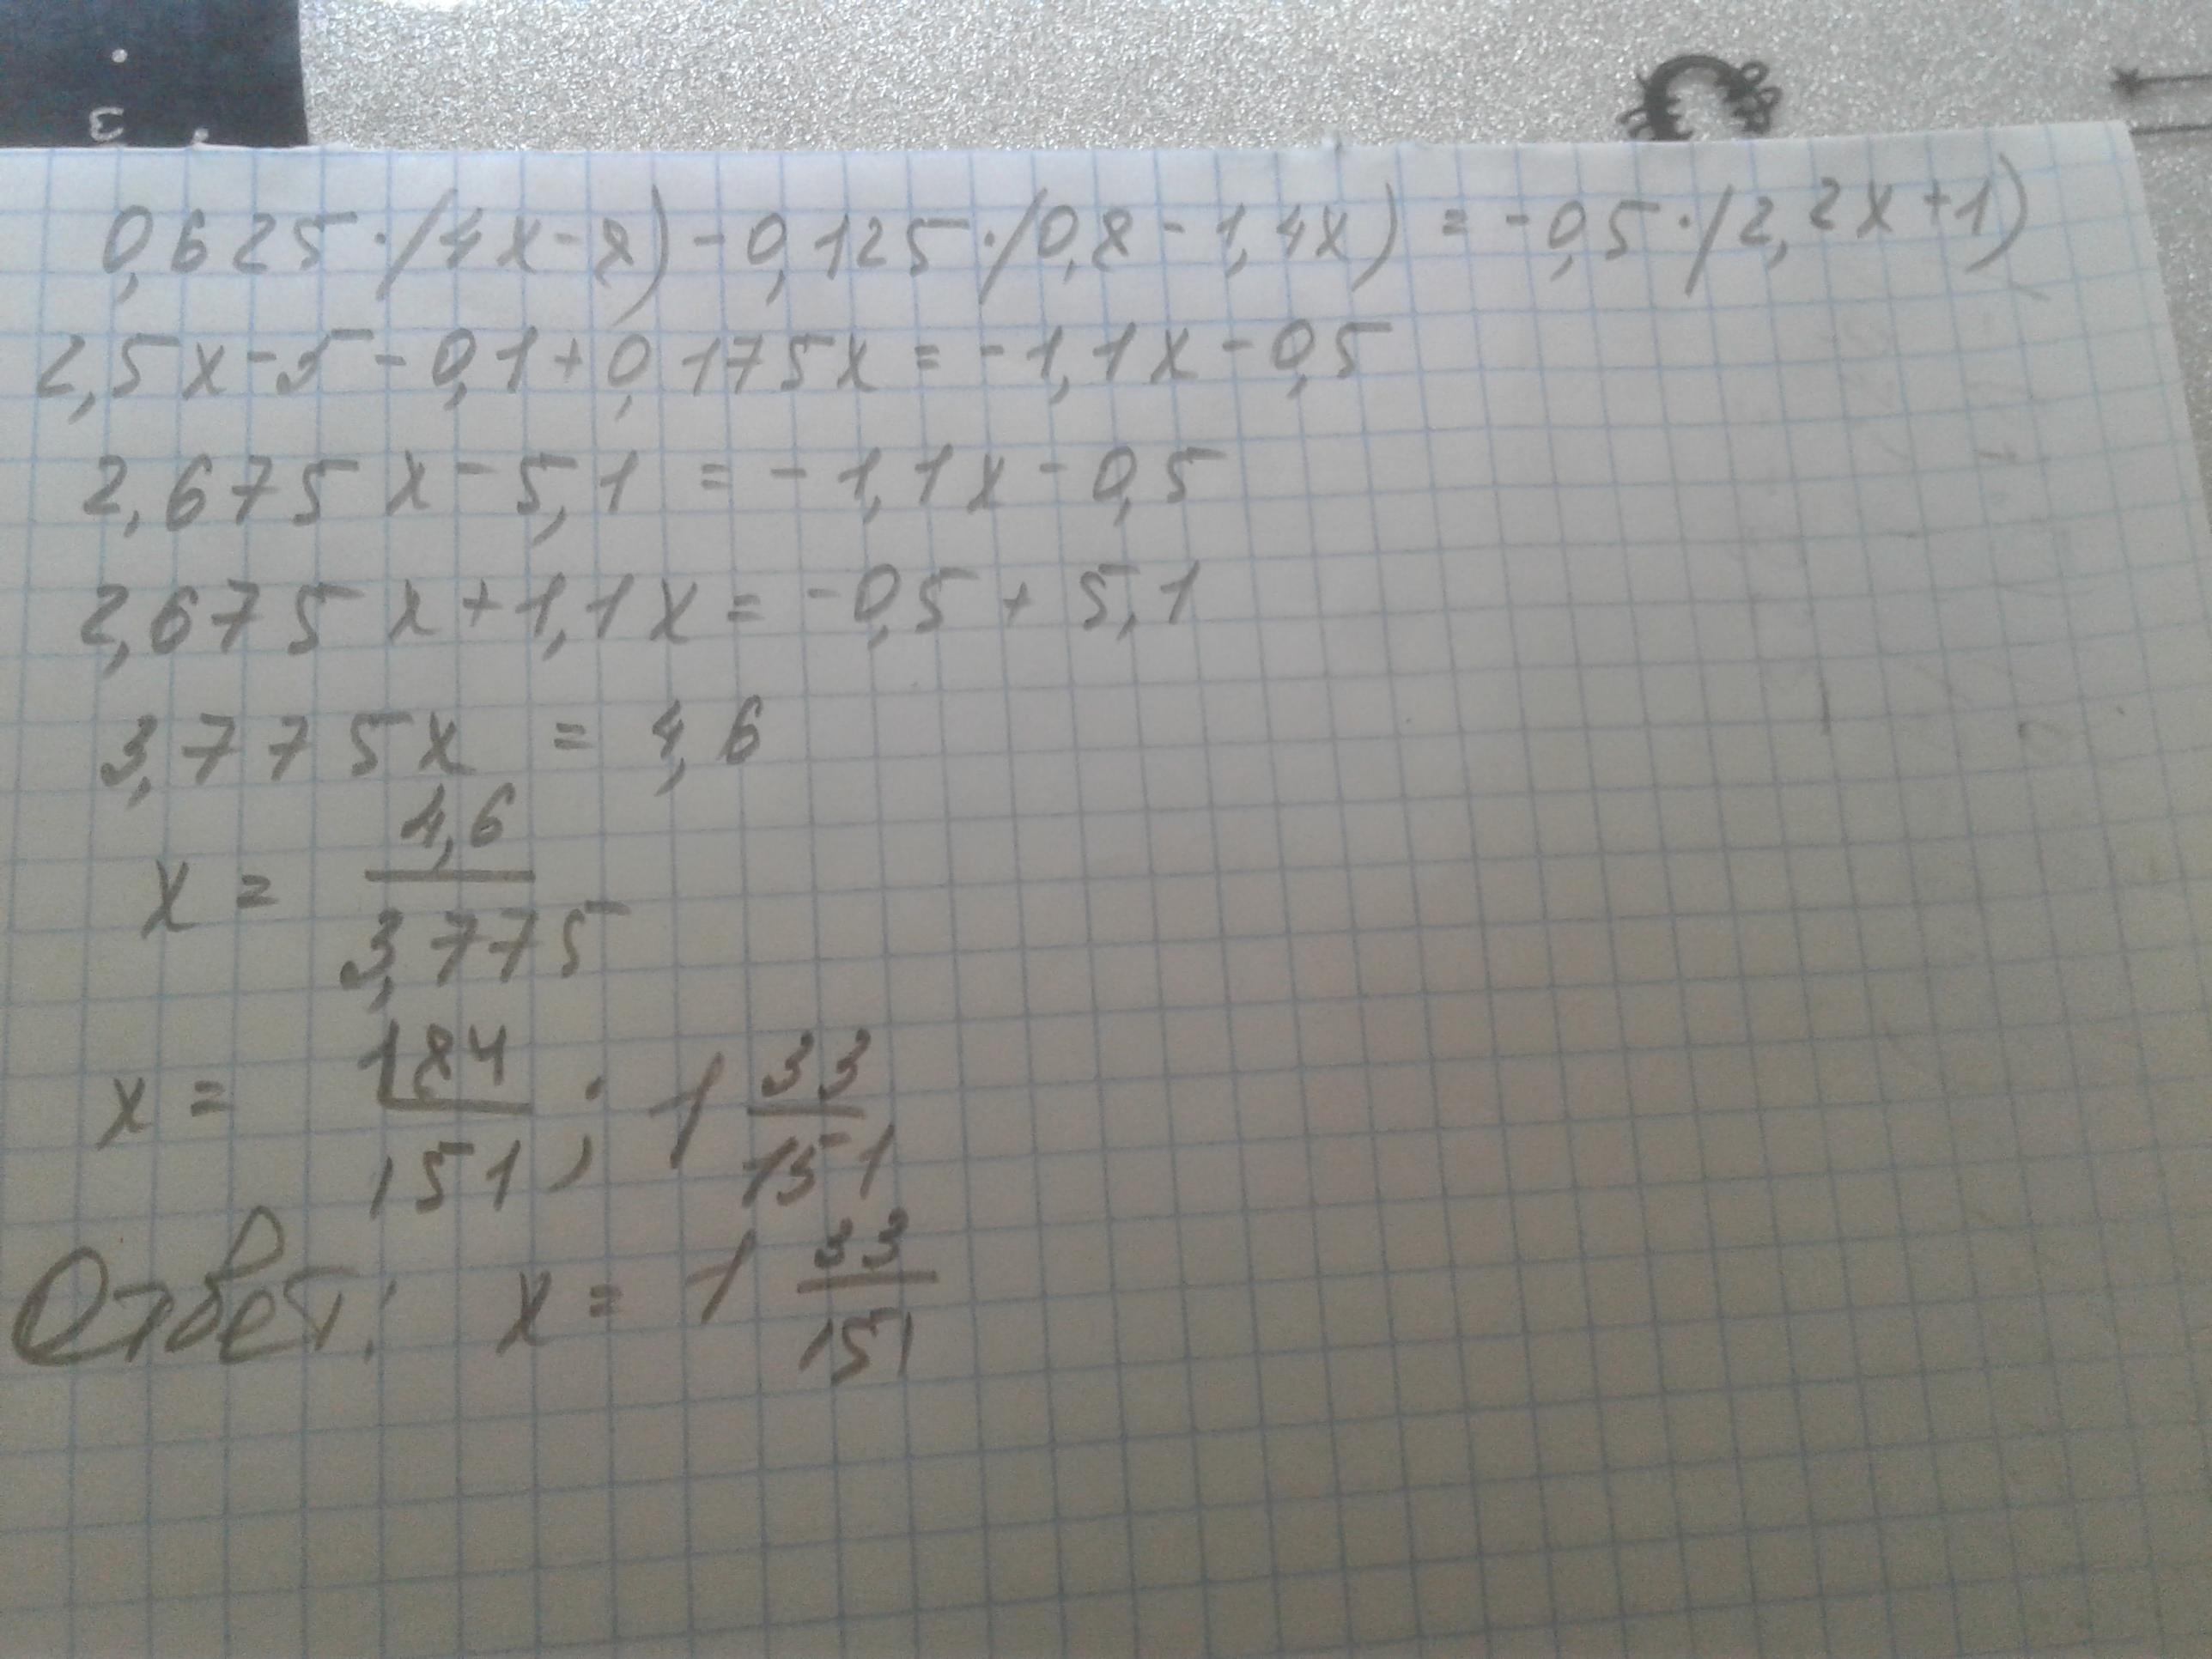 0,625·(4x-8)-0,125·(0,8-1,4x)=-0,5·(2,2x+1)
2,5x-5-0,1+0,175x=-1,1x-0,5
2,675x-5,1=-1,1x-0,5
2,675x+1,1x=-0,5+5,1
3,775x=4,6
x=4,6/3,775
x=184/151; 1 33/151
Ответ: x=1 33/151